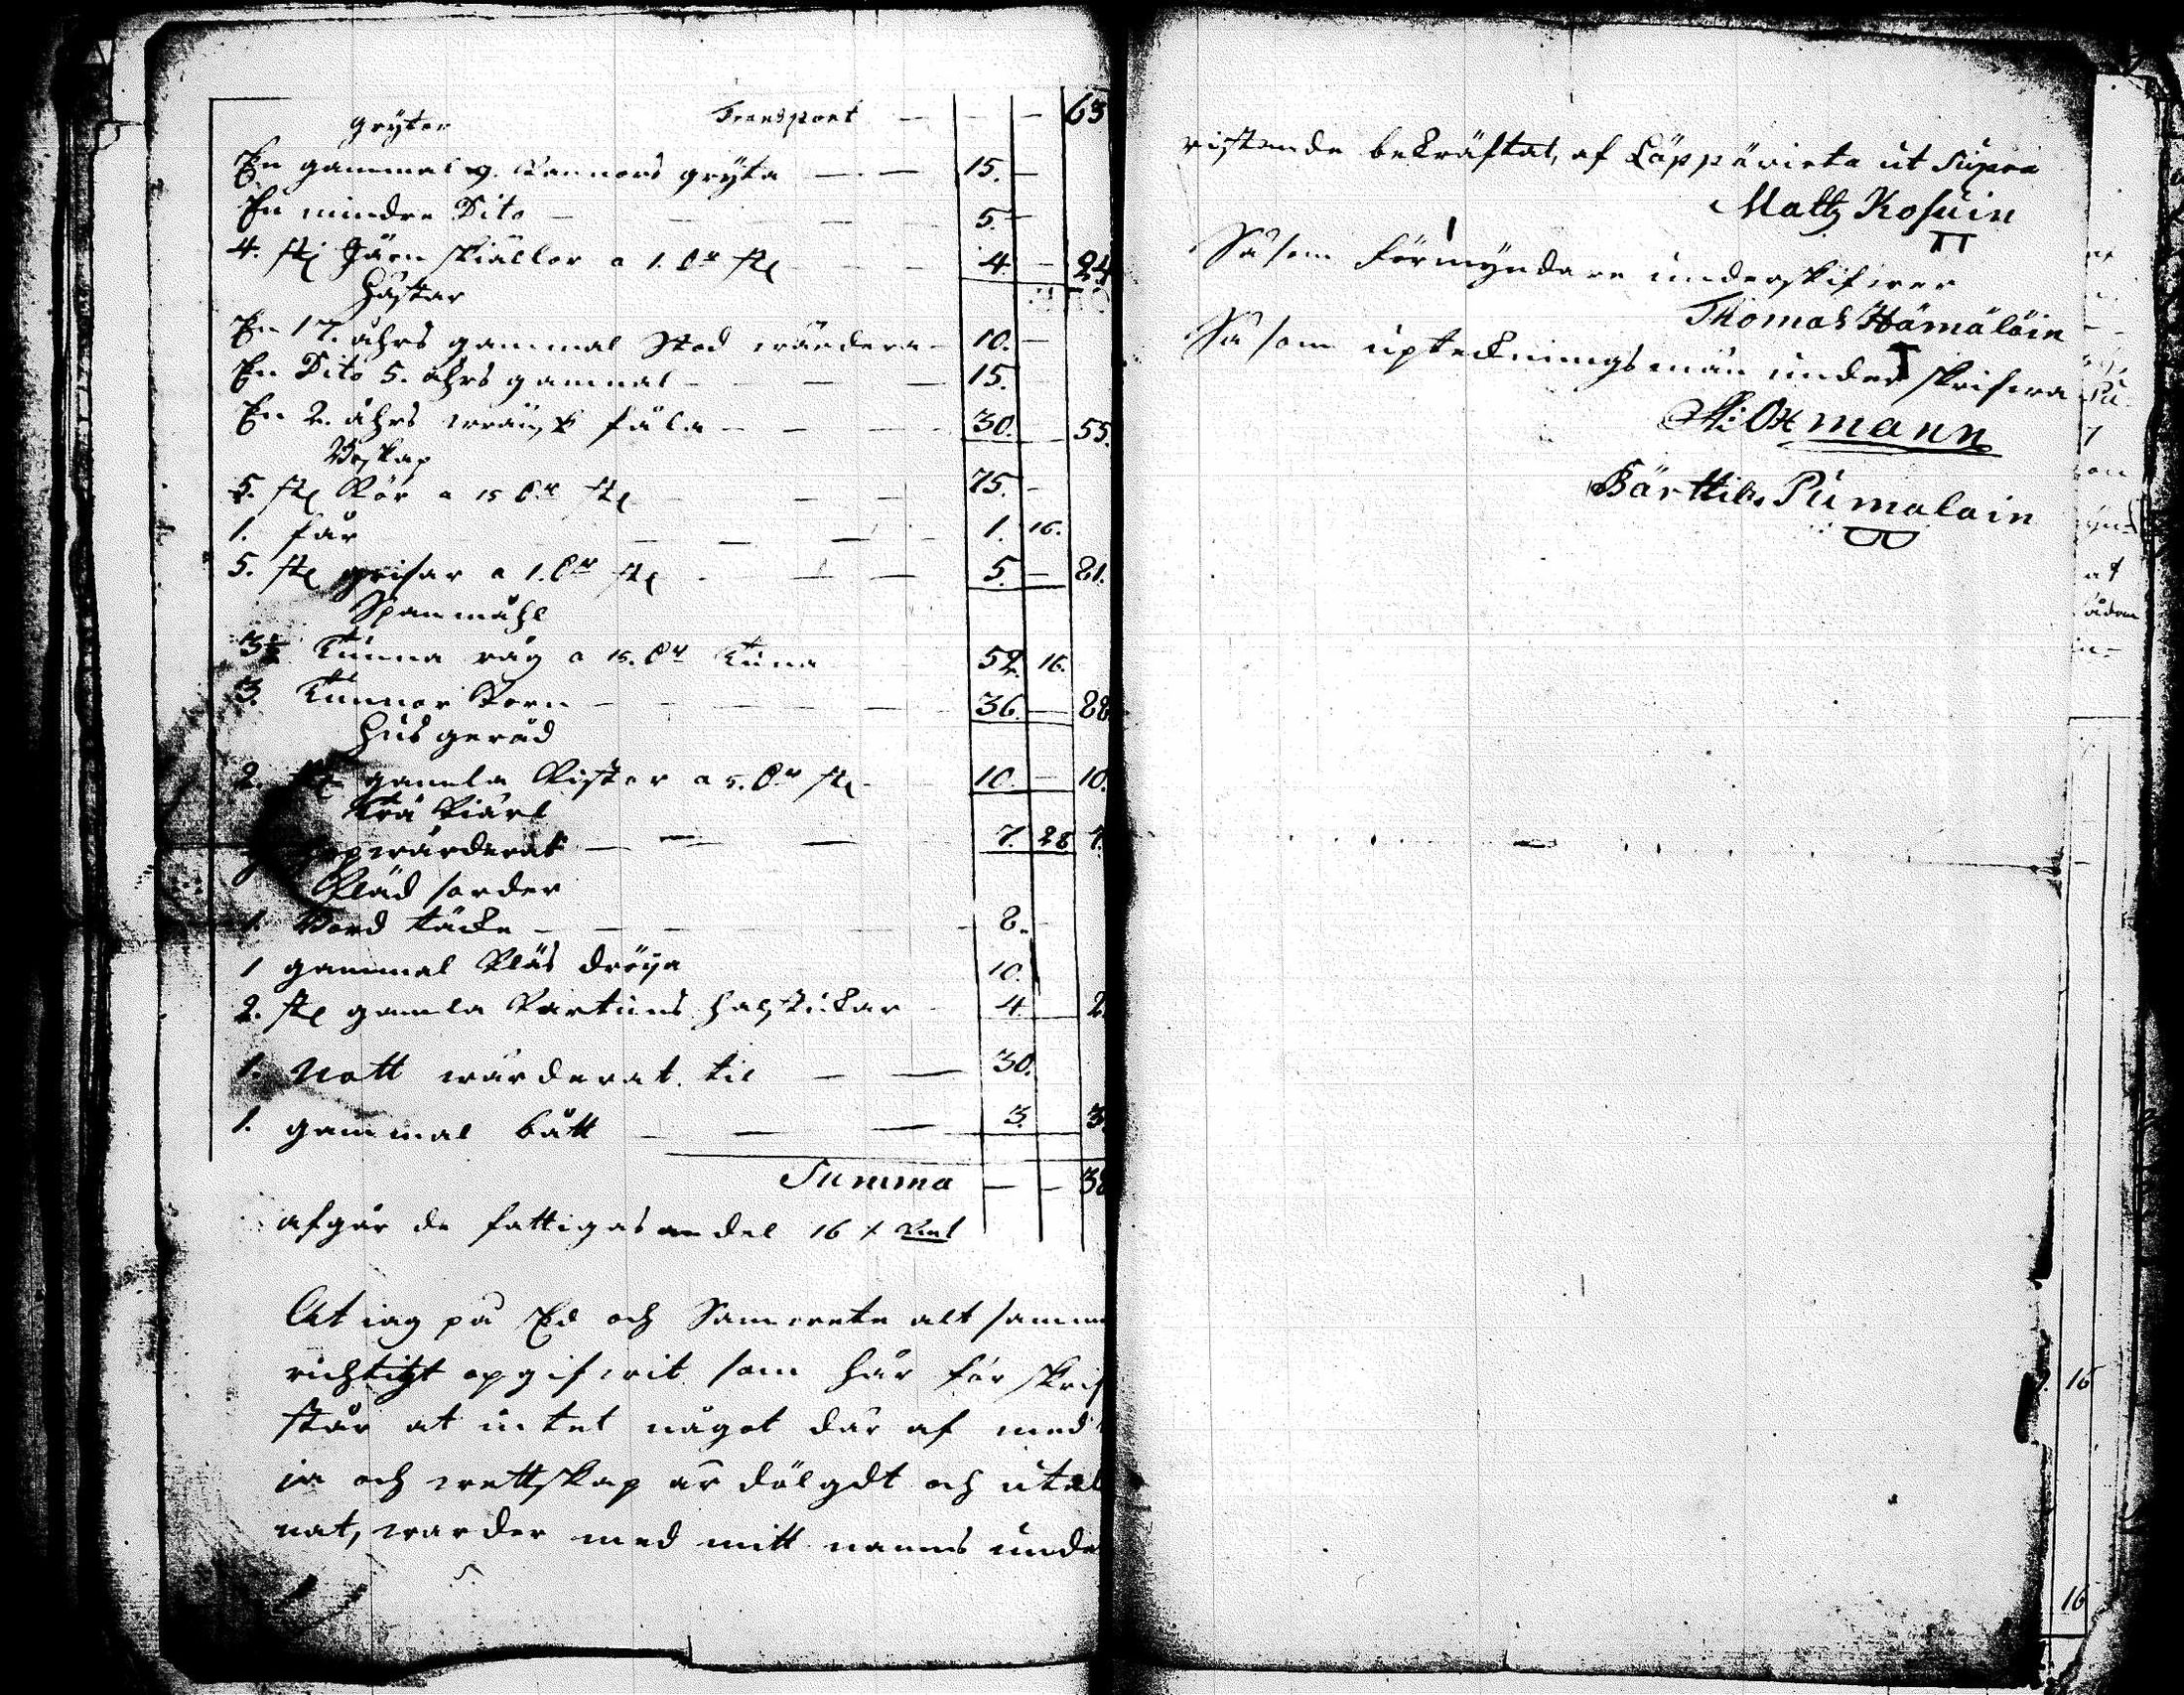 Gryter Transport — — — 63
En gammal 9. kannors gryta — — 15. —
En mindre Dito — — — — 5. —
4. st: Järn skiällor a 1. dr st: — — 4 — 24
Hästar
En 17. åhrs gammal Stod wärdera — 10. —
En Dito 5. åhrs gammal — — — 15.
En 2. åhrs wränsk fåla — — — 30. — 55.
Boskap
5. st: Kör a 15 dr st: — — — 75. —
1. får — — — — 1. 16.
5. st: grisar a 1. dr st: — — — 5. — 81.
Spanmåhl
3½ Tunna råg a 15. dr Tuna 52. 16.
3. Tunnor Korn — — — — 36. — 88
Husgeråd
2. st: gamla Kistor a 5. dr st: 10. — 10.
Trä Kiäril
wärderat — — — 7. 28 7.
Kläd sorder
1. Bord täcke — — — — 8. —
1 gammal Kläs dröija 10.
2. st: gamla Kartuns halsdukar 4 2
1. Nott wärderat til — — 30.
1. gammal bått — — — 3. 3
Summa — — 38
afgår de fattigas andel 16 x Kmt
At iag på Ed och Samwete alt samm
richtigt opgifwit som här för skrif
står at intet något där af med
ja och wettskap är dölgdt och utel
nat, warder med mitt namns unde
ristande bekräftat, af Läppäwirta ut supra
Matts Kosuin
Såsom Förmyndare underskifwer
Thomas Hämäläin
Såsom upteckningsmän underskrifwa
Oxmann
Bärttil Pumalain